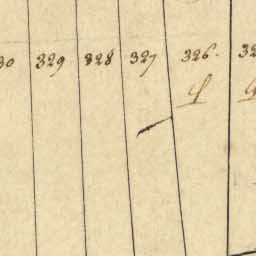 30 329 328 327 326. 32